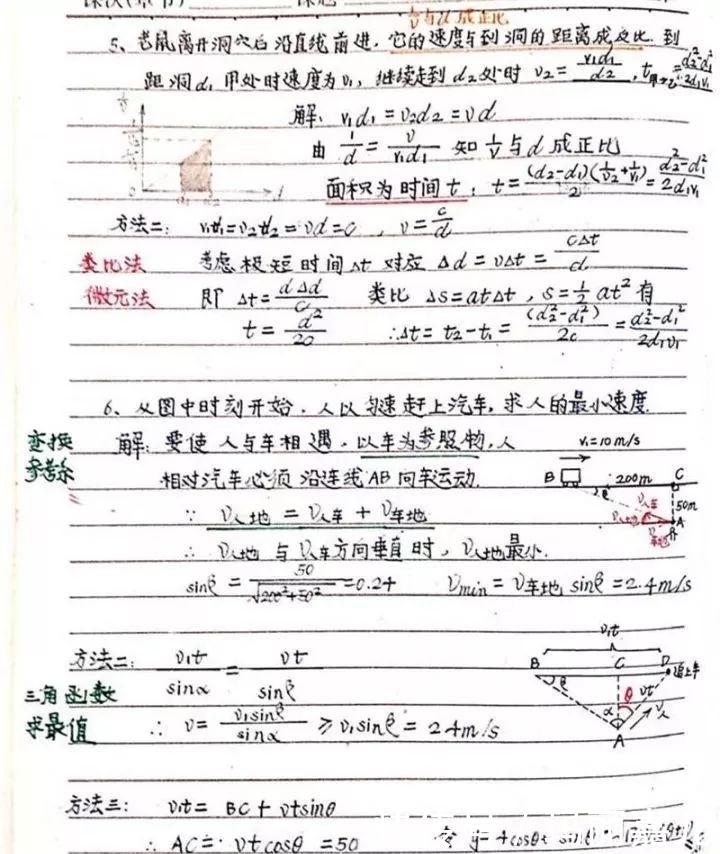 $\frac{1}{v}$与d成正比
5、老鼠离开洞穴后沿直线前进,它的速度与到洞的距离成反比.到
距洞d₁甲处时速度为v₁,继续走到d₂处时 v₂=$\frac{v_1d_1}{d_2}$,t甲→乙=$\frac{d_2^2-d_1^2}{2d_1v_1}$
解: v₁d₁=v₂d₂=vd
由 $\frac{1}{d}=\frac{v}{v_1d_1}$ 知 $\frac{1}{v}$与d成正比
面积为时间t: t=$\frac{(d_2-d_1)(\frac{1}{v_2}+\frac{1}{v_1})}{2}=\frac{d_2^2-d_1^2}{2d_1v_1}$
d₁ d₂
方法二: =vd=c , v=$\frac{c}{d}$
类比法 考虑极短时间Δt 对应 Δd=vΔt=$\frac{cΔt}{d}$
微元法 即 Δt=$\frac{dΔd}{c}$ 类比 Δs=atΔt, s=$\frac{1}{2}$at²有
t=$\frac{d^2}{2c}$ ∴Δt=t₂-t₁=$\frac{(d_2^2-d_1^2)}{2c}=\frac{d_2^2-d_1^2}{2d_1v_1}$
6、从图中时刻开始,人以匀速赶上汽车,求人的最小速度.
变换 解:要使人与车相遇,以车为参照物,人 v₁=10m/s
参考系 相对汽车必须沿连线AB向车运动. B 200m C
β 50m
∵ v人地=v人车+v车地 v人车 v人地 A
v车地
∴ v人地与v人车方向垂直时,v人地最小.
sinβ=$\frac{50}{\sqrt{200^2+50^2}}$=0.24 vmin=v车地sinβ=2.4m/s
方法二: $\frac{v_1t}{sinα}=\frac{vt}{sinβ}$ v₁t
B C D 追上车
三角函数 β θ vt
求最值 ∴ v=$\frac{v_1sinβ}{sinα}$≥v₁sinβ=2.4m/s α v人
A
方法三: v₁t=BC+vtsinθ
∴ AC= vtcosθ=50 令 y=4cosθ+sinθ